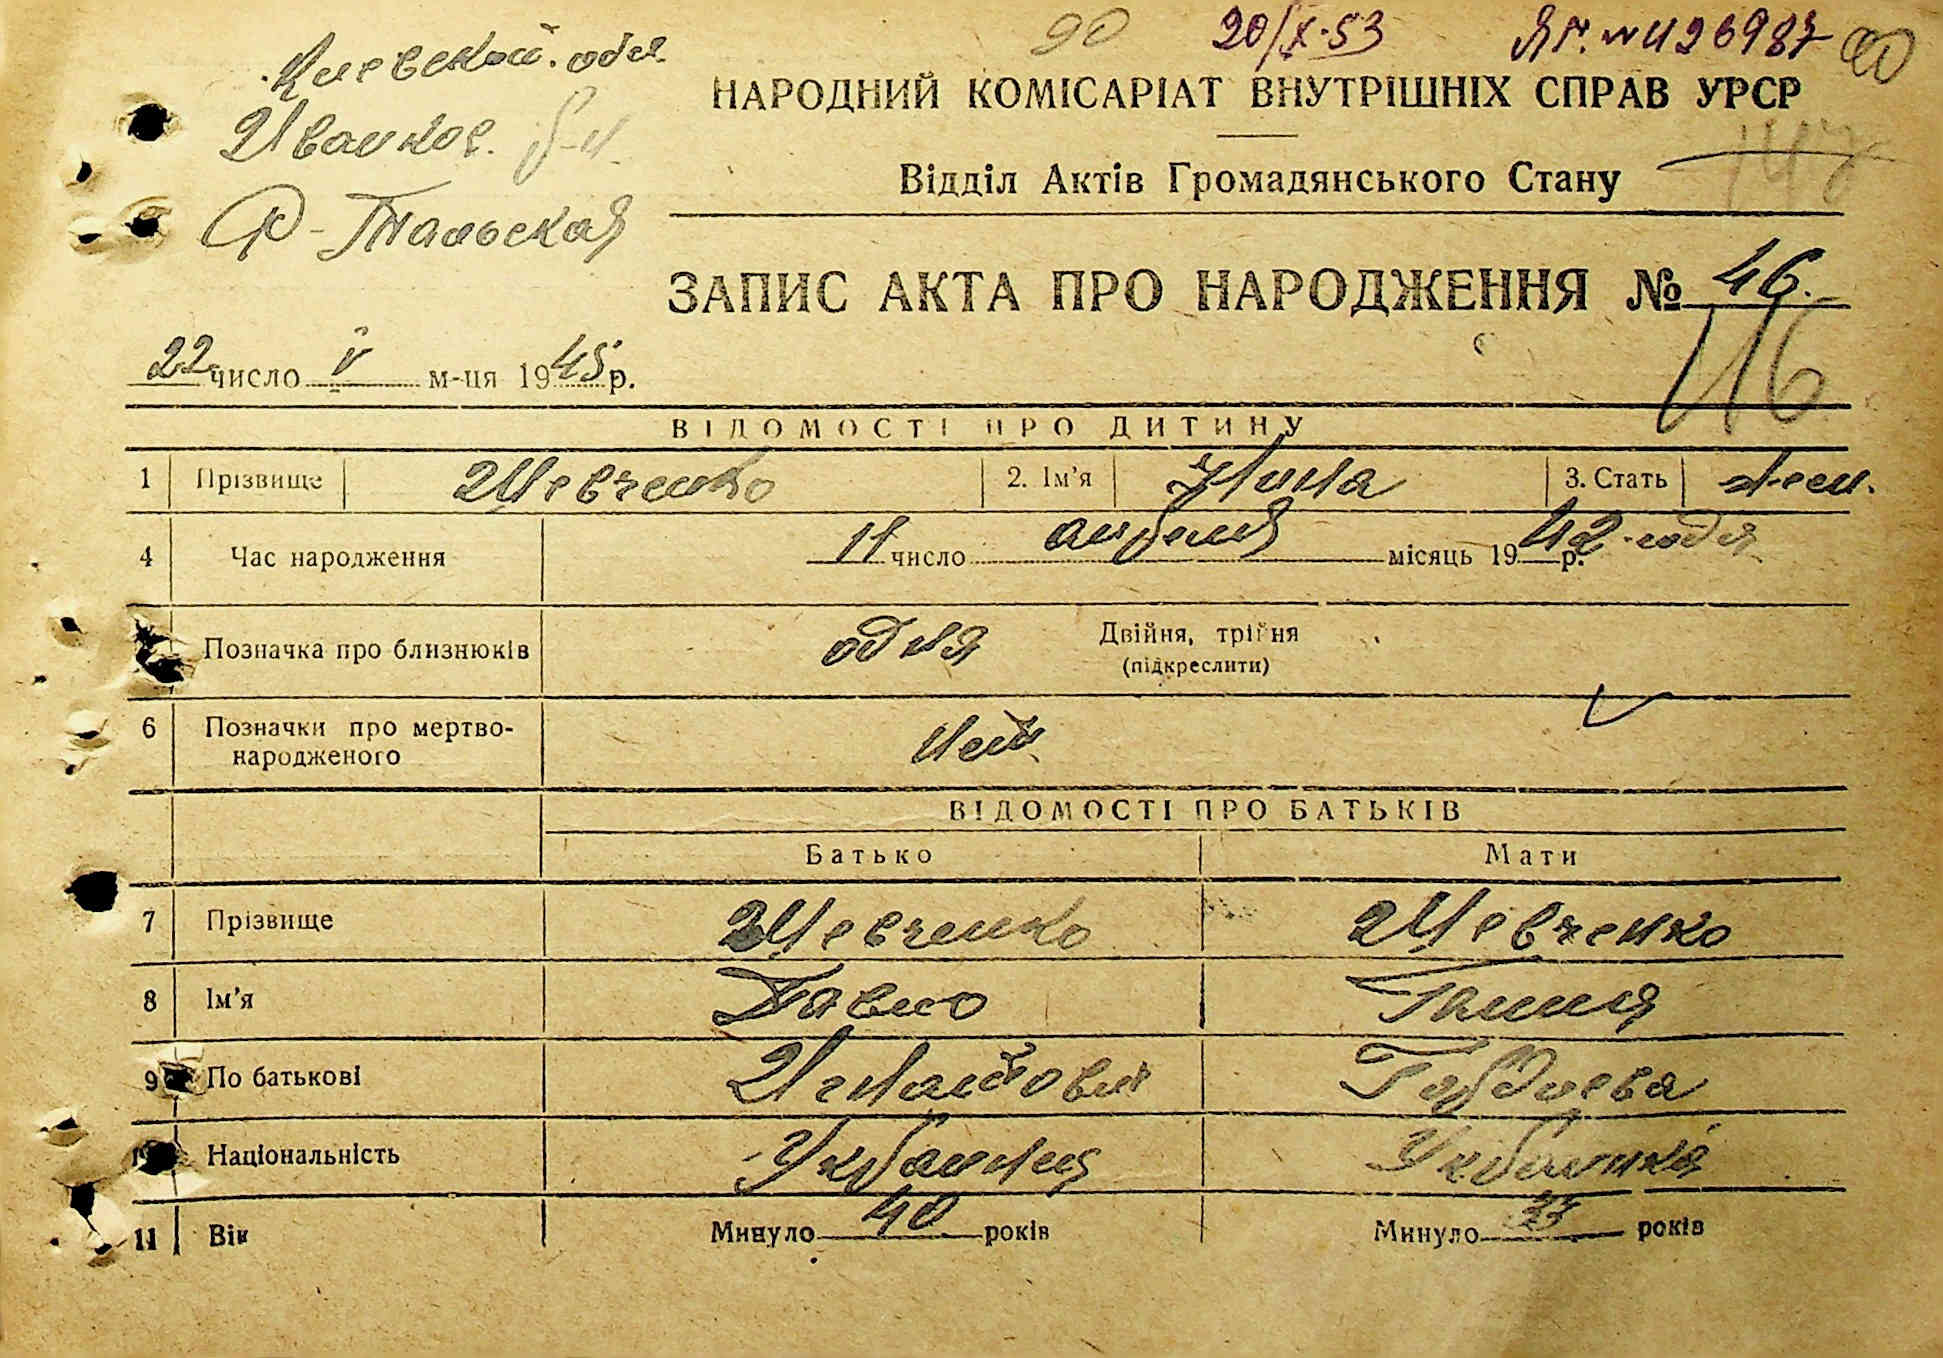 90 20/X-53 ЯГ. № 426987 90
Киевской. обл.
НАРОДНИЙ КОМІСАРІАТ ВНУТРІШНІХ СПРАВ УРСР
Иванков. р-н.
Відділ Актів Громадянського Стану
Р-Тальская
ЗАПИС АКТА ПРО НАРОДЖЕННЯ № 46.
46
22 число V м-ця 1945 р.
ВІДОМОСТІ ПРО ДИТИНУ
1 Прізвище Шевченко 2. Ім'я Нина 3. Стать жен.
4 Час народження 11 число апреля місяць 1942 р. года
Позначка про близнюків одна Двійня, трійня
(підкреслити)
6 Позначки про мертво-
народженого нет
ВІДОМОСТІ ПРО БАТЬКІВ
Батько Мати
7 Прізвище Шевченко Шевченко
8 Ім'я Павло Ганна
9 По батькові Игнатович
10 Національність Украинец Украинка
11 Вік Минуло 40 років Минуло 33 років